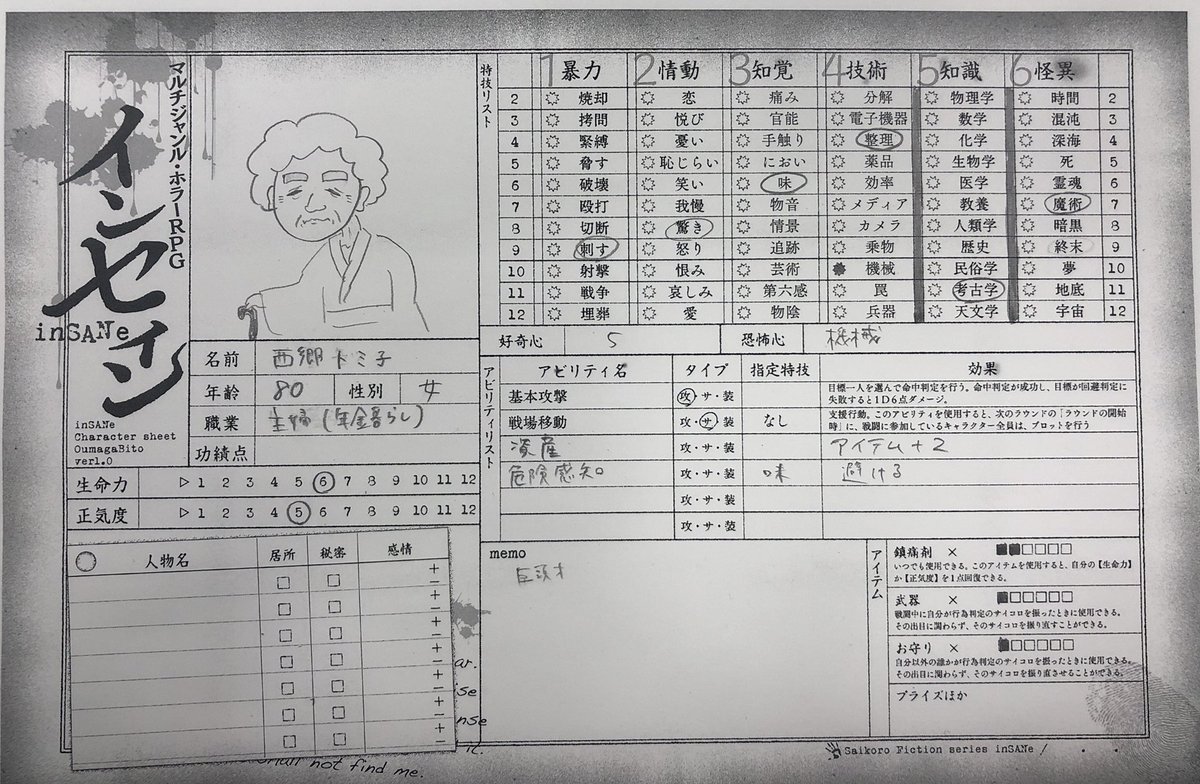 マルチジャンル・ホラーRPG
インセイン
inSANe
inSANe
Character sheet
OumagaBito
ver1.0
名前 西郷トミ子
年齢 80 性別 女
職業 主婦(年金暮らし)
功績点
生命力 ▷1 2 3 4 5 6 7 8 9 10 11 12
正気度 ▷1 2 3 4 5 6 7 8 9 10 11 12
人物名 居所 秘密 感情
+
−
+
−
+
−
+
−
+
−
+
−
+
−
ar.
ise
nse
not find me.
特技リスト
1暴力 2情動 3知覚 4技術 5知識 6怪異
2 焼却 恋 痛み 分解 物理学 時間 2
3 拷問 悦び 官能 電子機器 数学 混沌 3
4 緊縛 憂い 手触り 整理 化学 深海 4
5 脅す 恥じらい におい 薬品 生物学 死 5
6 破壊 笑い 味 効率 医学 霊魂 6
7 殴打 我慢 物音 メディア 教養 魔術 7
8 切断 驚き 情景 カメラ 人類学 暗黒 8
9 刺す 怒り 追跡 乗物 歴史 終末 9
10 射撃 恨み 芸術 機械 民俗学 夢 10
11 戦争 哀しみ 第六感 罠 考古学 地底 11
12 埋葬 愛 物陰 兵器 天文学 宇宙 12
好奇心 5 恐怖心 機械
アビリティリスト
アビリティ名 タイプ 指定特技 効果
基本攻撃 攻・サ・装 目標一人を選んで命中判定を行う。命中判定が成功し、目標が回避判定に
失敗すると1D6点ダメージ。
戦場移動 攻・サ・装 なし 支援行動。このアビリティを使用すると、次のラウンドの「ラウンドの開始
時」に、戦闘に参加しているキャラクター全員は、プロットを行う
資産 攻・サ・装 アイテム+2
危険感知 攻・サ・装 味 避ける
攻・サ・装
攻・サ・装
memo
アイテム
鎮痛剤 × ■■□□□□
いつでも使用できる。このアイテムを使用すると、自分の【生命力】
か【正気度】を1点回復できる。
武器 × ■□□□□□
戦闘中に自分が行為判定のサイコロを振ったときに使用できる。
その出目に関わらず、そのサイコロを振り直すことができる。
お守り × ■□□□□□
自分以外の誰かが行為判定のサイコロを振ったときに使用できる。
その出目に関わらず、そのサイコロを振り直させることができる。
プライズほか
Saikoro Fiction series inSANe /